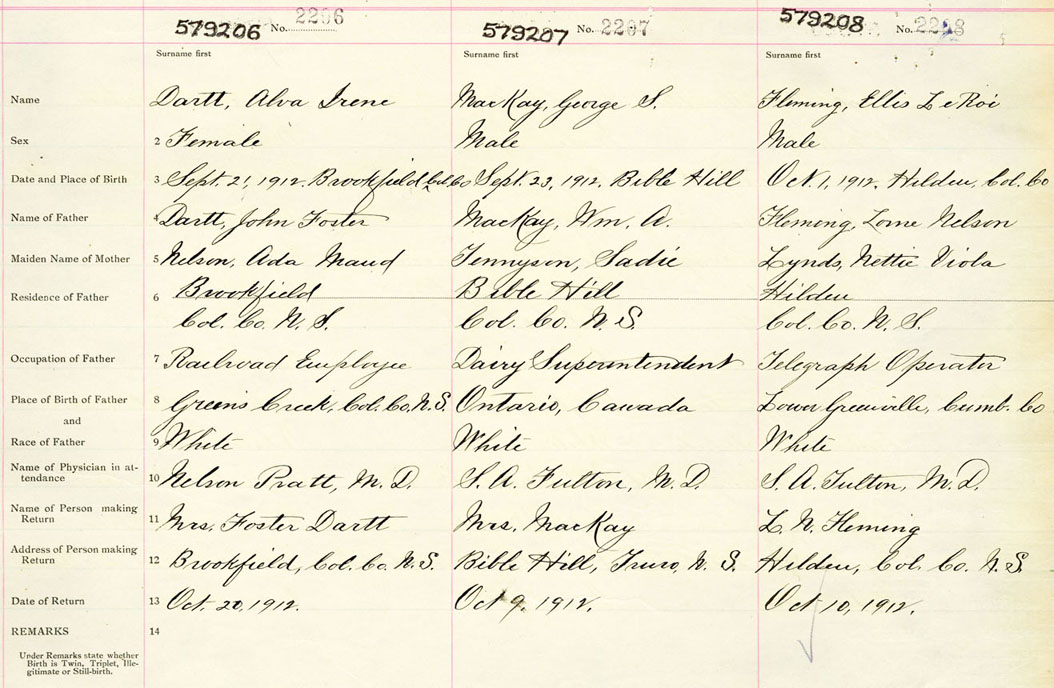 579206 No. 2206 579207 No. 2207 579208 No. 2208
Surname first Surname first Surname first
Name Dartt, Alva Irene MacKay, George S. Fleming, Ellis LeRoi
Sex 2 Female Male Male
Date and Place of Birth 3 Sept. 21, 1912. Brookfield, Col. Co Sept. 23, 1912. Bible Hill Oct. 1, 1912. Hilden, Col. Co
Name of Father 4 Dartt, John Foster MacKay, Wm. A. Fleming, Lorne Nelson
Maiden Name of Mother 5 Nelson, Ada Maud Tennyson, Sadie Lynds, Nettie Viola
Residence of Father 6 Brookfield Bible Hill Hilden
Col. Co. N. S. Col. Co. N. S. Col. Co. N. S.
Occupation of Father 7 Railroad Employee Dairy Superintendent Telegraph Operator
Place of Birth of Father 8 Greens Creek, Col. Co, N. S. Ontario, Canada Lower Greenville, Cumb. Co
and
Race of Father 9 White White White
Name of Physician in at-
tendance 10 Nelson Pratt, M. D. S. A. Fulton, M. D. S. A. Fulton, M. D.
Name of Person making
Return 11 Mrs. Foster Dartt Mrs. MacKay L. N. Fleming
Address of Person making
Return 12 Brookfield, Col. Co. N. S. Bible Hill, Truro, N. S. Hilden, Col. Co. N. S.
Date of Return 13 Oct. 20, 1912. Oct 9, 1912. Oct 10, 1912.
REMARKS 14
Under Remarks state whether
Birth is Twin, Triplet, Ille-
gitimate or Still-birth.